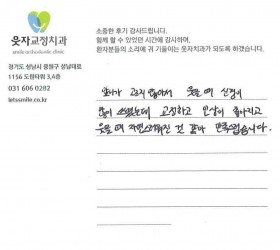 소중한 후기 감사드립니다.
함께 할 수 있었던 시간에 감사하며,
환자분들의 소리에 귀 기울이는 웃자치과가 되도록 하겠습니다.
웃자교정치과
smile orthodontic clinic
경기도 성남시 중원구 성남대로
1156 도원타워 3,4층
031 606 0282
letssmile.co.kr
치아가 고르지 않아서 웃을 때 신경이
많이 쓰였는데 교정하고 인상이 좋아지고
웃을 때 자연스러워진 것 같아 만족스럽습니다.